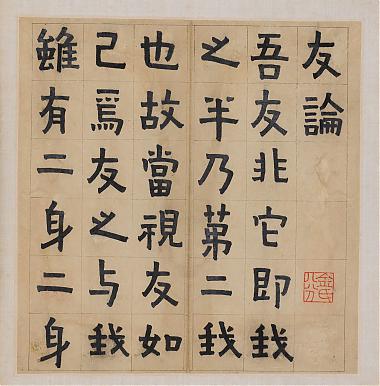 友論
吾友非它即我
之半乃第二我
也故當視友如
己焉友之与我
雖有二身二身